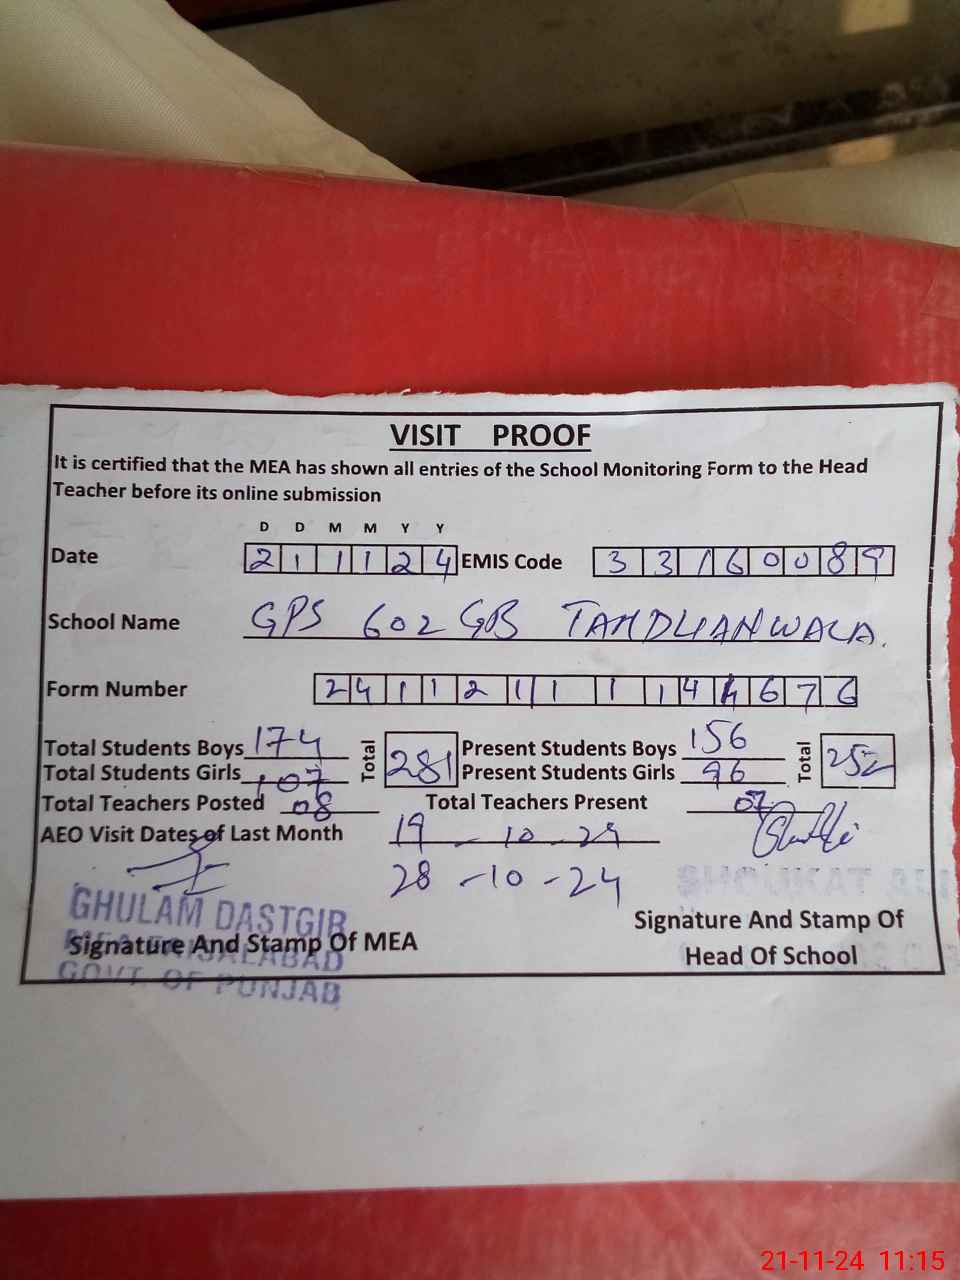 VISIT PROOF
It is certified that the MEA has shown all entries of the School Monitoring Form to the Head
Teacher before its online submission
D D M M Y Y
Date 2 1 1 1 2 4 EMIS Code 3 3 1 6 0 0 8 9
School Name GPS 602 GB TANDLIANWALA.
Form Number 2 4 1 1 2 1 1 1 1 4 4 6 7 6
Total Students Boys 174 Total 281 Present Students Boys 156 Total 252
Total Students Girls 107 Present Students Girls 96
Total Teachers Posted 08 Total Teachers Present 07
AEO Visit Dates of Last Month 19 - 10 - 24
28 - 10 - 24
GHULAM DASTGIR
MEA FAISALABAD
GOVT. OF PUNJAB
Signature And Stamp Of MEA
Signature And Stamp Of
Head Of School
21-11-24 11:15